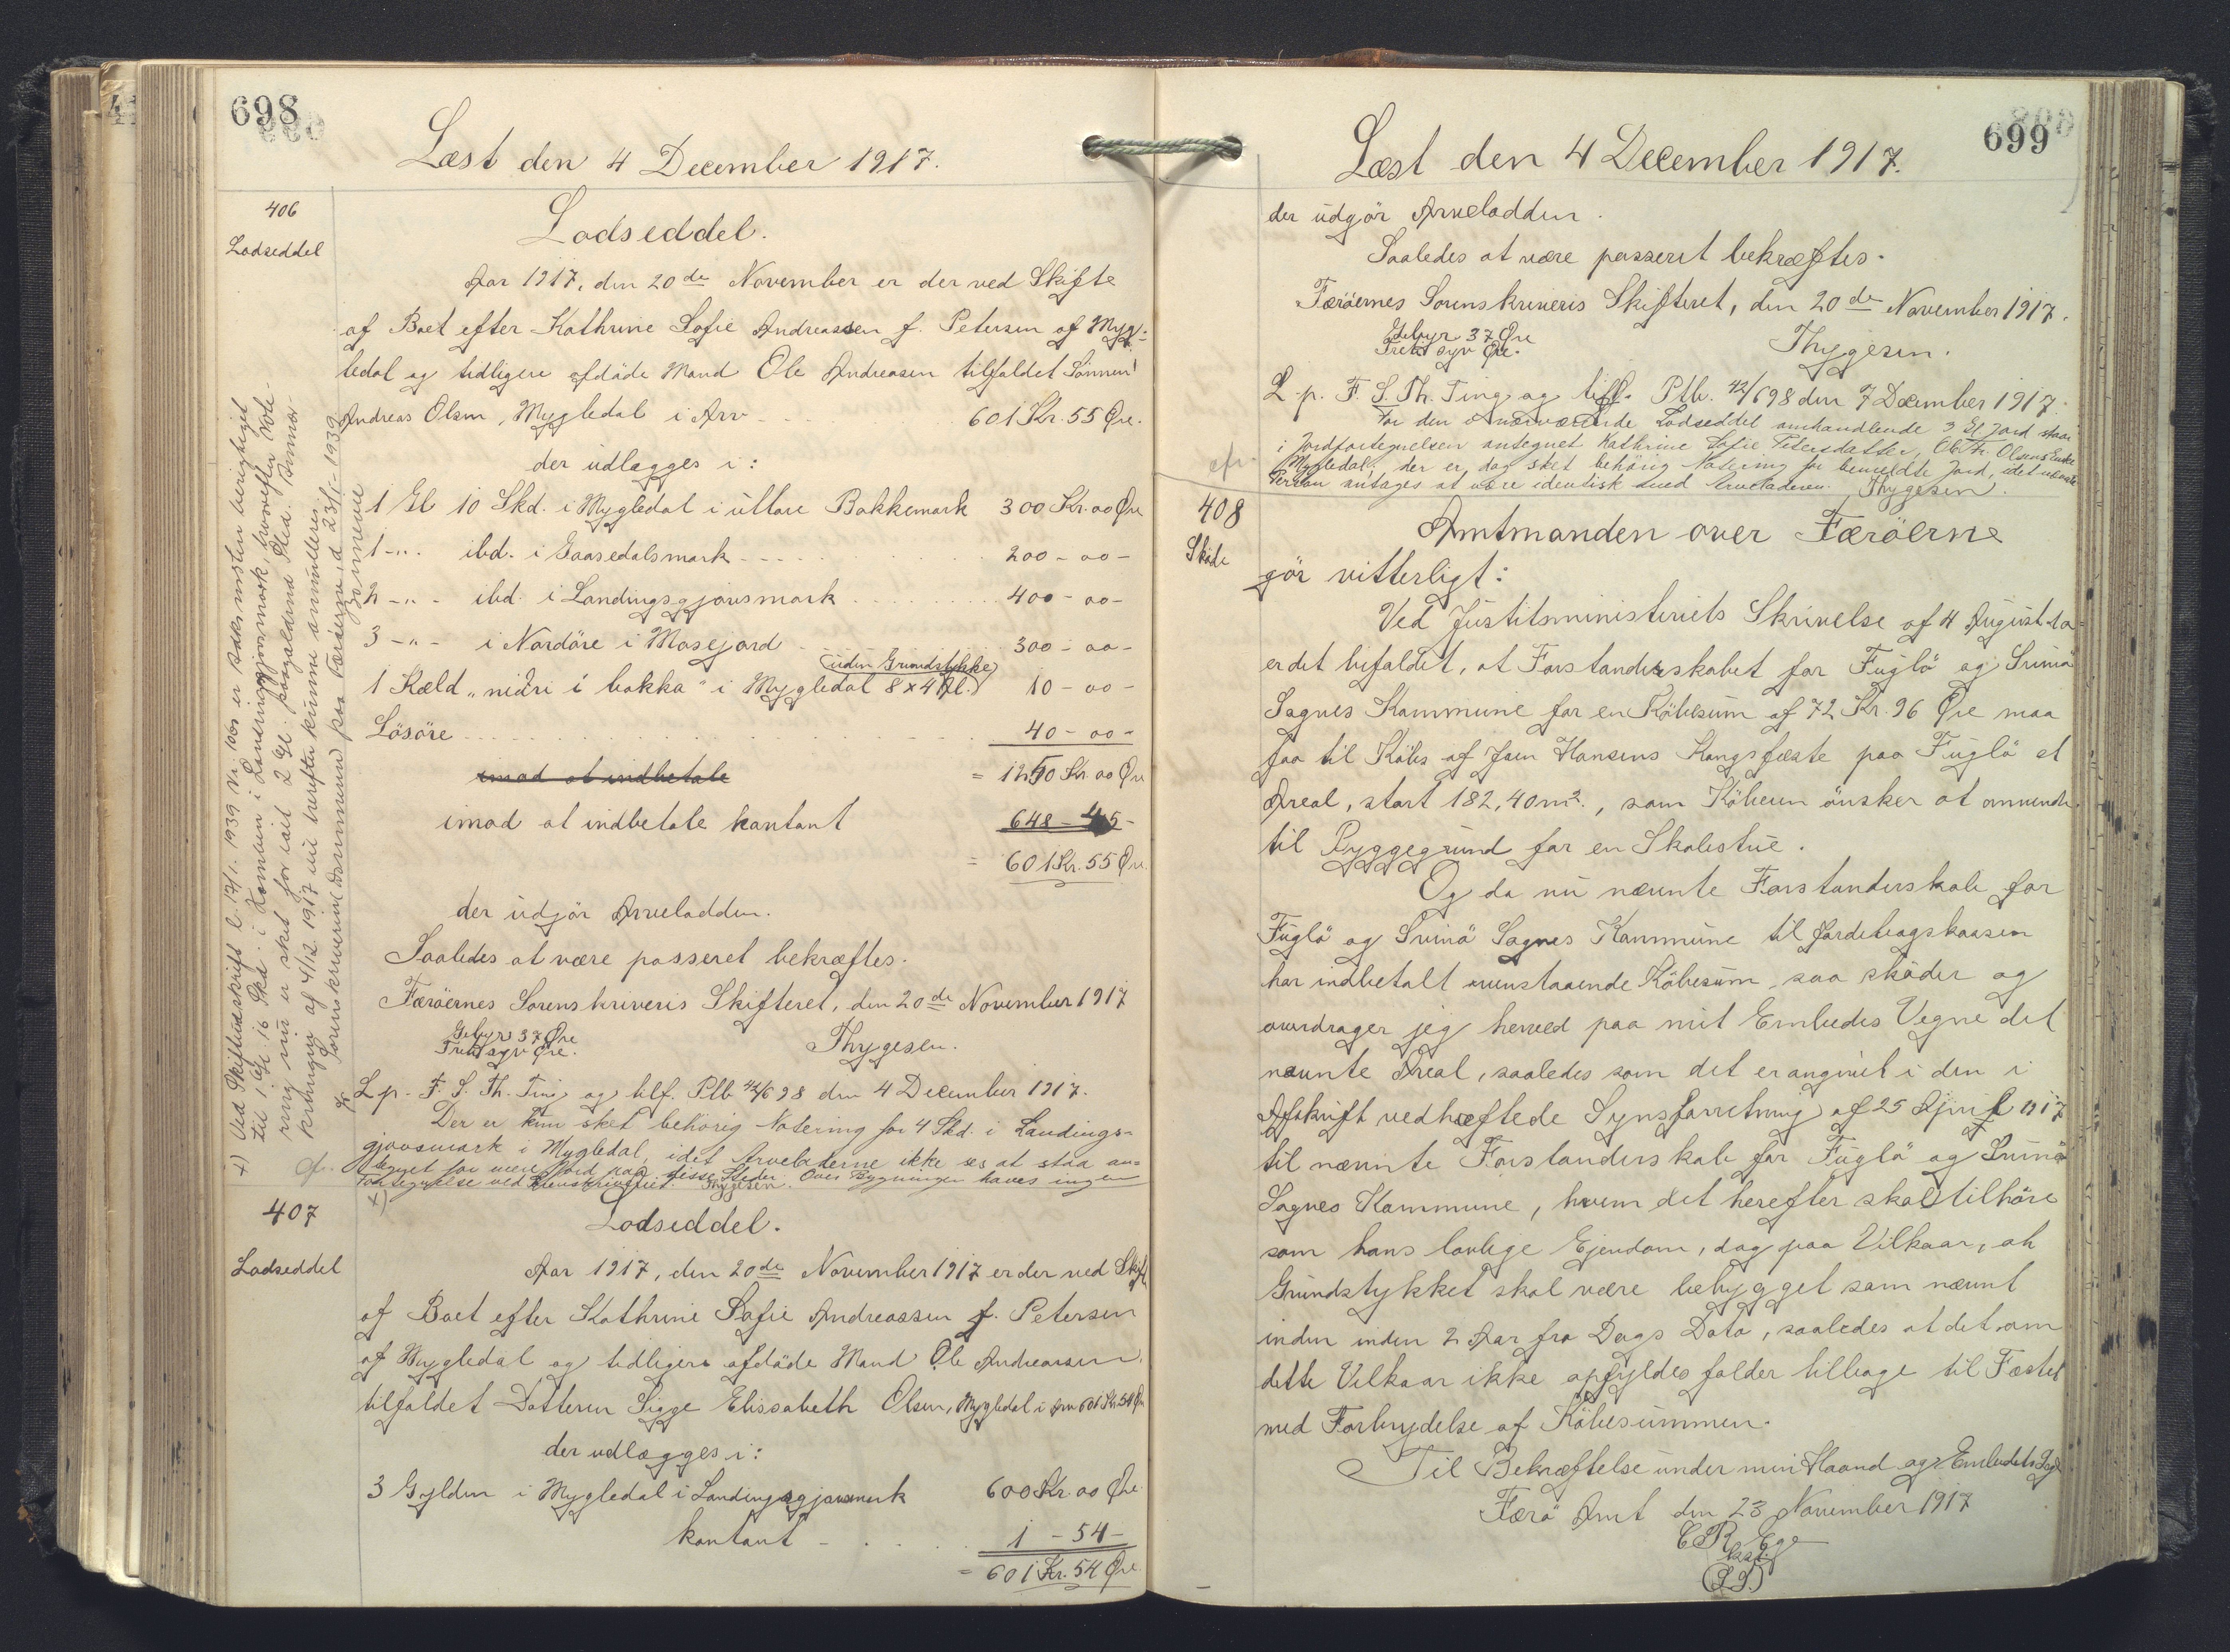 698
Læst den 4 December 1917.
406
Lodseddel
Lodseddel.
Aar 1917, den 20de November er der ved Skifte
af Boet efter Kathrine Sofie Andreassen f. Petersen af Myg-
ledal og tidligere afdöde Mand Ole Andreasen tilfaldet Sönnen
Andreas Olsen, Mygledal i Arv 601 Kr. 55 Øre.
der udlægges i:
1 Gl 10 Skd. i Mygledal i uttare Bakkemark 300 Kr. 00 Øre
1 -"- ibd. i Gaasedalsmark 200 - 00 -
2 -"- ibd. i Landingsgjovsmark 400 - 00 -
3 -"- i Nordöre i Mosejord 300 - 00 -
(uden Grundstykke)
1 Kæld "nidri i bakka" i Mygledal 8 x 4 Al. 10 - 00 -
Lösöre 40 - 00 -
imod at indbetale = 1250 Kr. 00 Øre
imod at indbetale kontant 648 - 45 -
= 601 Kr. 55 Øre.
der udgör Arvelodden.
Saaledes at være passeret bekræftes.
Færöernes Sorenskriveris Skifteret, den 20de November 1917
Gebyr 37 Øre
Treti syv Øre.
Thygesen.
L. p. F. S. Th. Ting og tilf. Ptb 42/698 den 4 December 1917.
Der er kun sket behörig Notering for 4 Skd. i Landings-
gjovsmark i Mygledal, idet Arveladerne ikke ses at staa an-
tegnet for mere Jord paa disse Steder. Over Bygningen haves ingen
Fortegnelse ved Sorenskriveriet. Thygesen.
x)
x) Ved Skifteudskrift l. 17/1. 1939 Nr. er
til 1 Gl 16 Skd. i
ring nu er sket for ialt 2 Gl. paagældende Sted.
kningen af 4/12 1917 vil herefter kunne annulleres.
Sorenskriveriet paa Færöerne, d. 23/1 - 1939
407
Lodseddel
Lodseddel.
Aar 1917, den 20de November 1917 er der ved Skifte
af Boet efter Kathrine Sofie Andreassen f. Petersen
af Mygledal og tidligere afdöde Mand Ole Andreasen
tilfaldet Datteren Sigge Elissabeth Olsen, Mygledal i Arv 601 Kr. 54 Øre
der udlægges i:
3 Gylden i Mygledal i Landingsgjovsmark 600 Kr. 00 Øre
kontant 1 - 54 -
= 601 Kr. 54 Øre.
699
Læst den 4 December 1917.
der udgör Arvelodden.
Saaledes at være passeret bekræftes.
Færöernes Sorenskriveris Skifteret, den 20de November 1917.
Gebyr 37 Øre
Treti syv Øre.
Thygesen.
L. p. F. S. Th. Ting og tilf. Ptb. 42/698 den 7 December 1917.
For den i nærværende Lodseddel omhandlende 3 Gl Jord staar
i Jordfortegnelsen antegnet Kathrine Sofie Petersdatter, Ole Olsens Enke
Mygledal, der er dog sket behörig Notering for bemeldte Jord, idet nævnte
Person antages at være identisk med Arveladeren. Thygesen.
408
Sköde
Amtmanden over Færöerne
gör vitterligt:
Ved Justitsministeriets Skrivelse af 4 August d.a.
er det bifaldet, at Forstanderskabet for Fuglö og Svinö
Sognes Kommune for en Köbesum af 72 Kr. 96 Øre maa
faa til Köbs af Joen Hansens Kongsfæste paa Fuglö et
Areal, stort 182,40 m2., som Köberen önsker at anvende
til Byggegrund for en Skolestue.
Og da nu nævnte Forstanderskab for
Fuglö og Svinö Sognes Kommune til Jordebogskassen
har indbetalt ovenstaaende Köbesum, saa sköder og
overdrager jeg herved paa mit Embedes Vegne det
nævnte Areal, saaledes som det er angivet i den i
Afskrift vedhæftede Synsforretning af 25 April 1917
til nævnte Forstanderskab for Fuglö og Svinö
Sognes Kommune, hvem det herefter skal tilhöre
som hans lovlige Ejendom, dog paa Vilkaar, at
Grundstykket skal være bebygget som nævnt
inden inden 2 Aar fra Dags Dato, saaledes at det om
dette Vilkaar ikke opfyldes falder tilbage til Fæstet
med Forbrydelse af Köbesummen.
Til Bekræftelse under min Haand og Embedets Segl
Færö Amt den 23 November 1917
C R Ege
kst.
(L.S.)